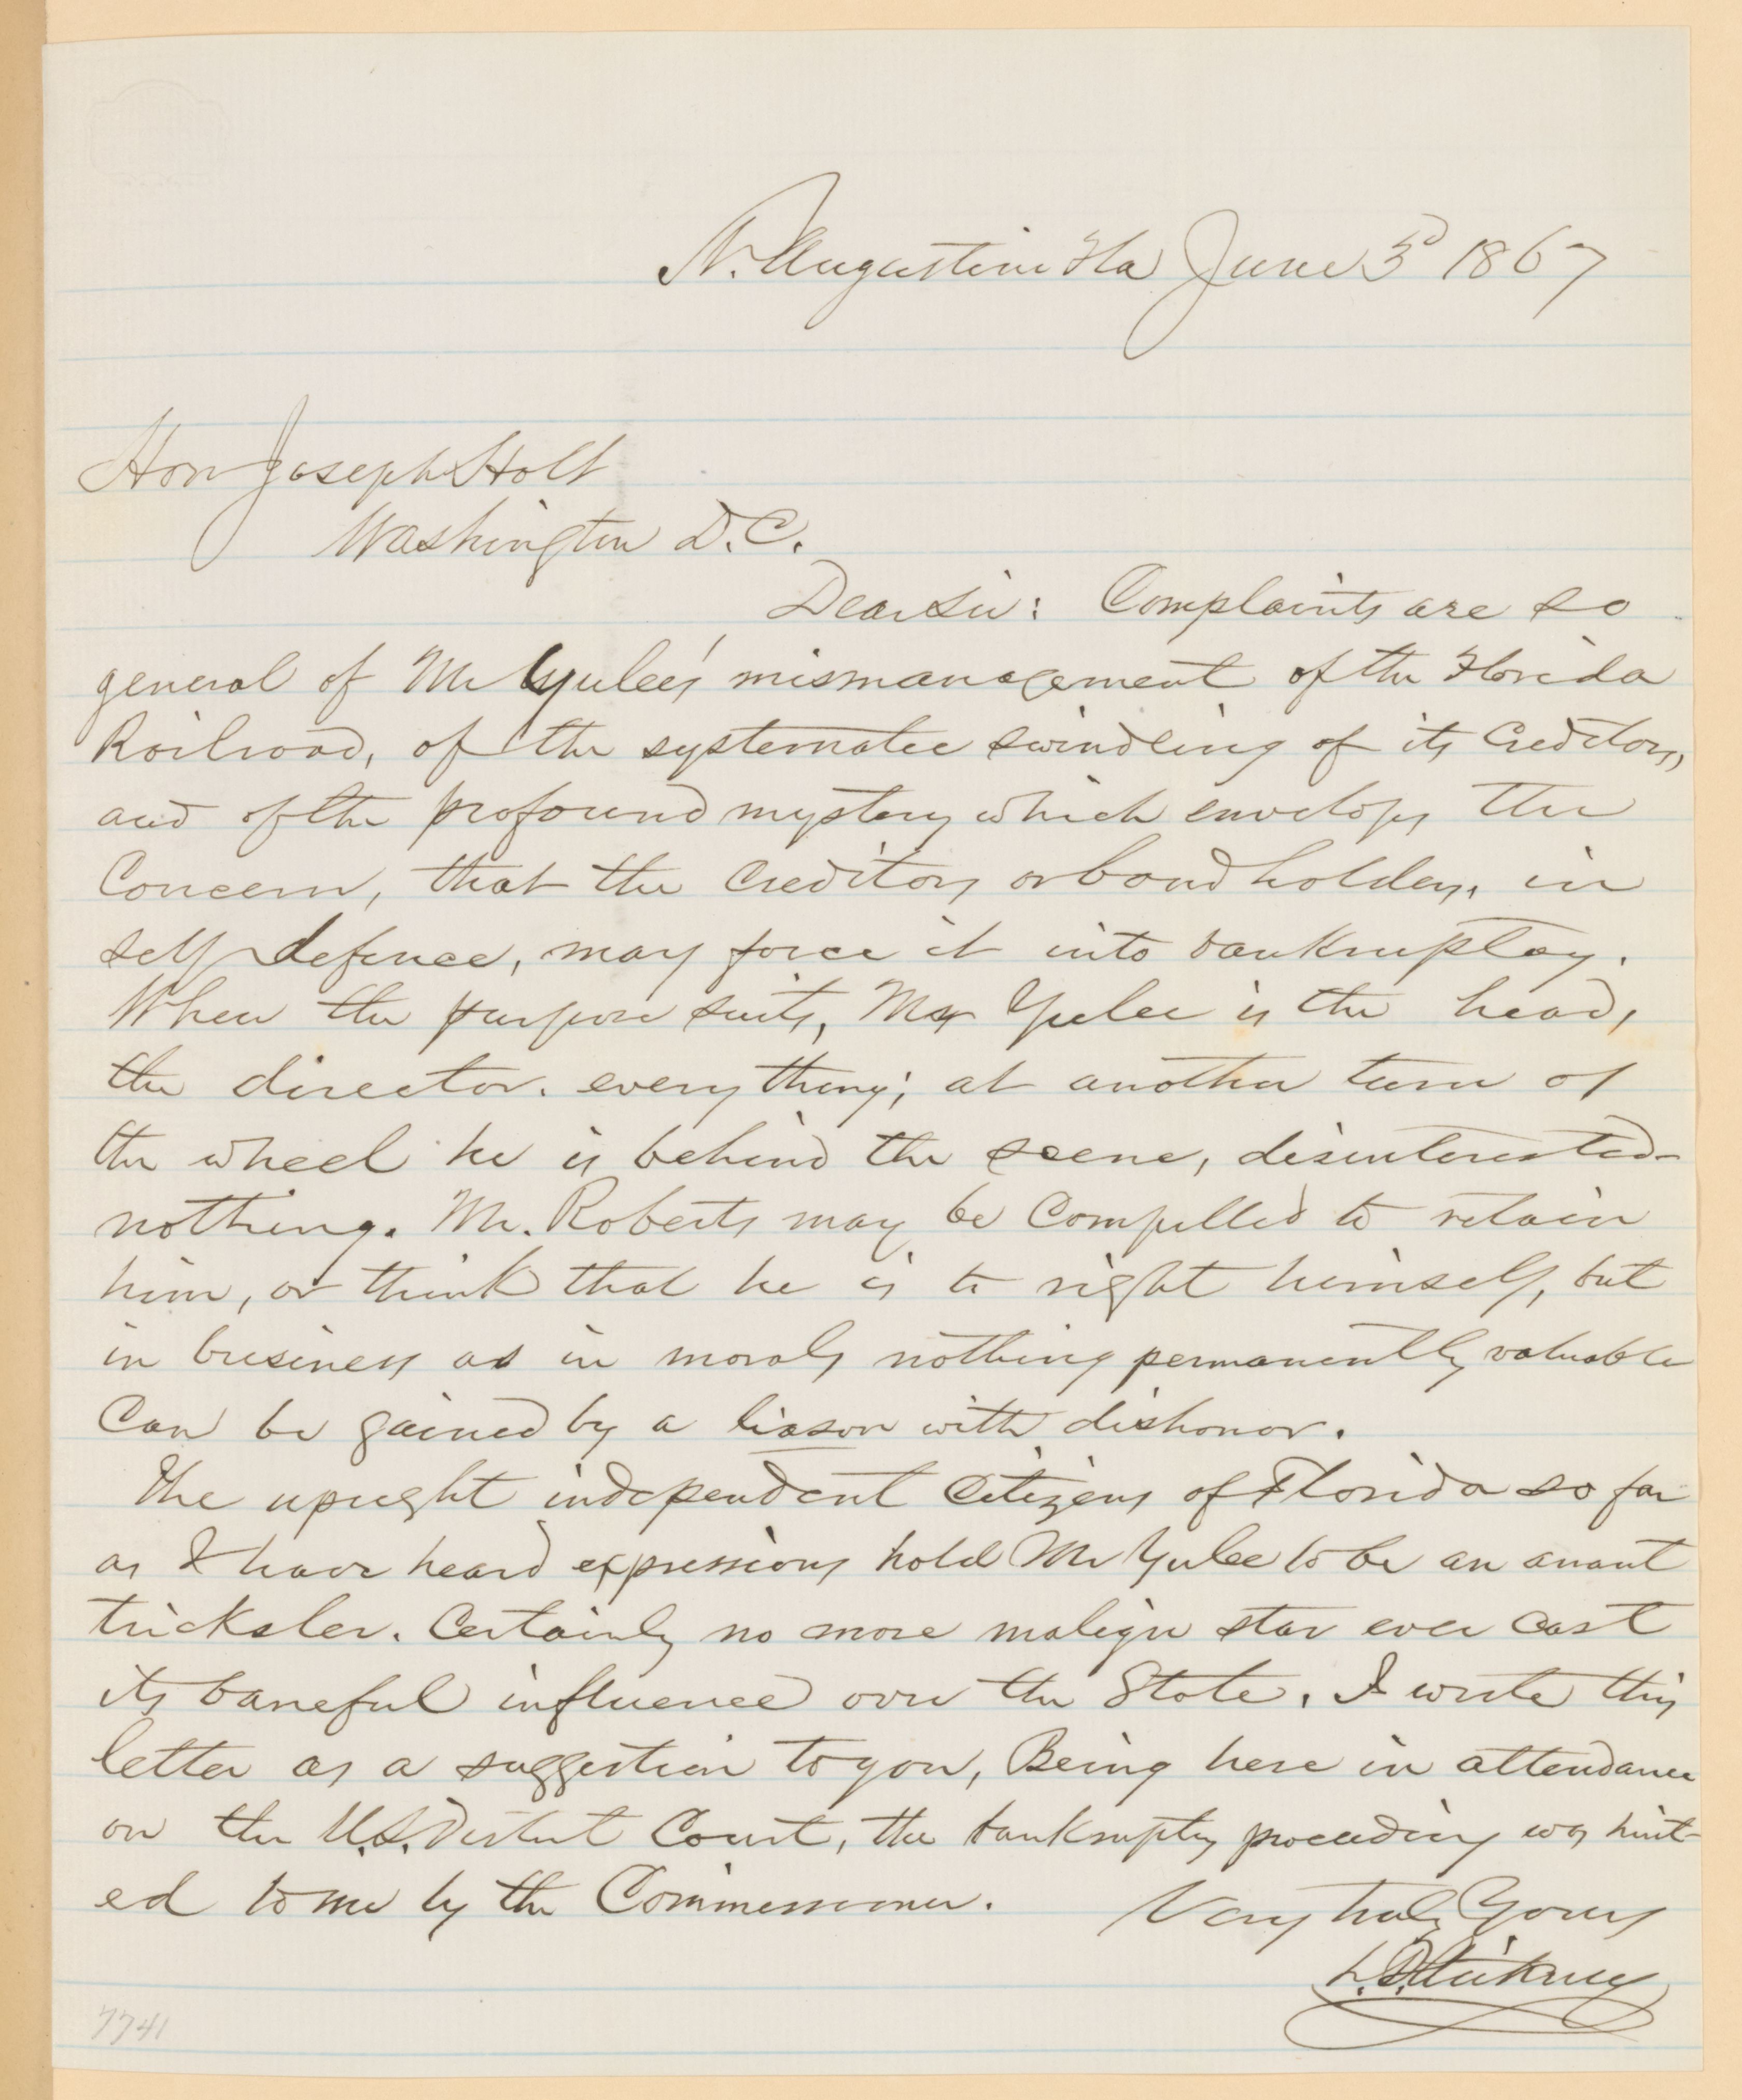 St. Augustine Fla June 3d 1867
Hon Joseph Holt
Washington D.C.
Dear Sir: Complaints are so
general of Mr Yulee's mismanagement of the Florida
Railroad, of the systematic swindling of its Creditors,
and of the profound mystery which envelops the
Concern, that the Creditors or bondholders, in
self defence, may force it into bankruptcy.
When the purpose suits, Mr Yulee is the head,
the director. everything; at another turn of
the wheel he is behind the scene, disinterested-
nothing. Mr. Roberts may be Compelled to retain
him, or think that he is to right himself, but
in business as in morals nothing permanently valuable
Can be gained by a liason with dishonor.
The upright independent Citizens of Florida so far
as I have heard expressions hold Mr Yulee to be an arrant
trickster. Certainly no more malign star ever cast
its baneful influence over the State. I write this
letter as a suggestion to you, Being here in attendance
on the U.S. District Court, the bankruptcy proceeding was hint-
ed to me by the Commissioner.
Very truly Yours
L. D. Stickney
7741